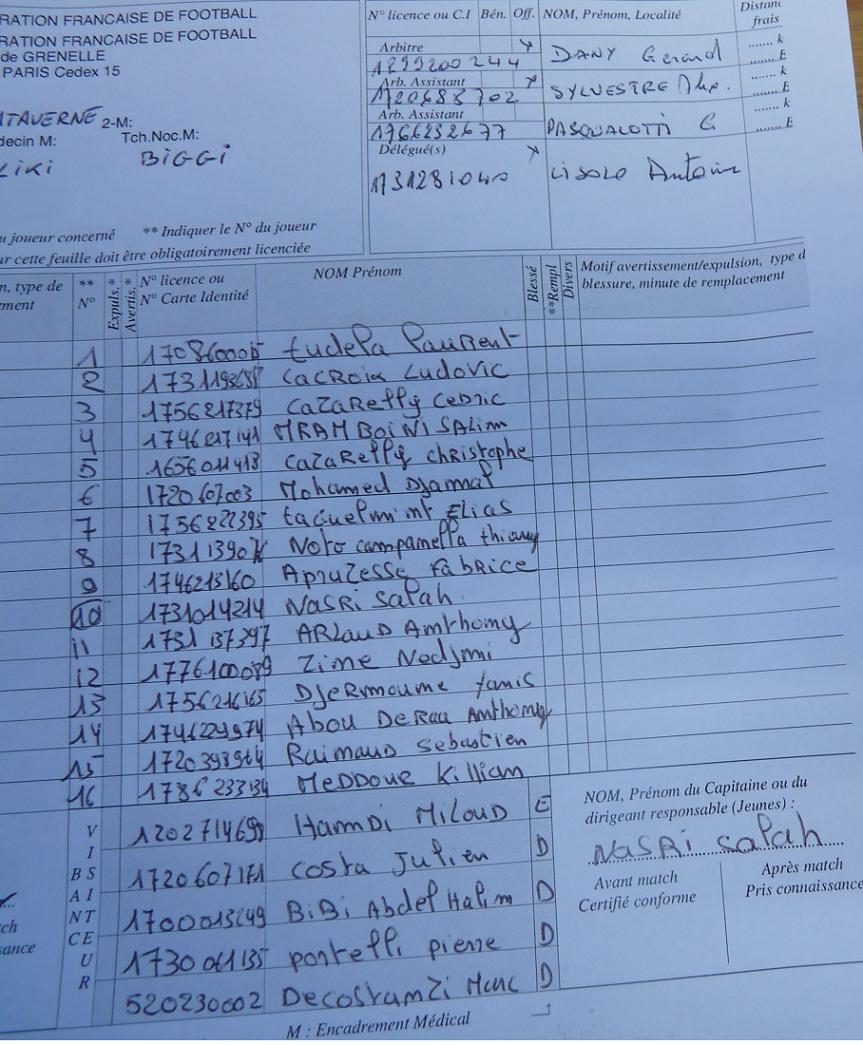 RATION FRANCAISE DE FOOTBALL
RATION FRANCAISE DE FOOTBALL
de GRENELLE
PARIS Cedex 15
TAVERNE 2-M:
decin M: Tch.Noc.M:
Liki BiGGi
u joueur concerné ** Indiquer le N° du joueur
ur cette feuille doit être obligatoirement licenciée
N° licence ou C.I Bén. Off. NOM, Prénom, Localité Distanc frais
Arbitre
1299200244 DANY Gerand
Arb. Assistant
1720688702 SYLVESTRE
Arb. Assistant
1766232677 PASQUALOTTI G
Délégué(s)
Antoine
n, type de ment ** N° Expuls.* Avertis.* N° licence ou N° Carte Identité NOM Prénom Blessé **Rempl Divers Motif avertissement/expulsion, type d blessure, minute de remplacement
1 tudela Laurent
2 Lacroix Ludovic
3 1756217379 CaZaRelly Cedric
4 MRAMBOiNi SALim
5 1656011413 CaZaRelly ChRistophe
6 1720607003 Mohamed Djamal
7 1756222395 taguelmint Elias
8 Noto campanella thierry
9 Apruzesse Fabrice
10 1731014214 NaSRi Salah
11 1731137397 ARLauD Amthomy
12 1776100089 Zime Nedjmi
13 1756216165 DJeRmoume yanis
14 1746229974 Abou DeRau Amthomy
15 1720393964 Raimaud Sebastien
16 1786233134 MeDDouR Killian
VISITEUR BANC
Hamdi MiLouD E
1720607171 Costa Julien D
1700013649 BiBi Abdel Halim D
1730061135 portelli pierre D
520230002 Decostanzi Marc D
NOM, Prénom du Capitaine ou du
dirigeant responsable (Jeunes) :
NaSRi Salah
Avant match
Certifié conforme
Après match
Pris connaissance
ch
sance
M : Encadrement Médical